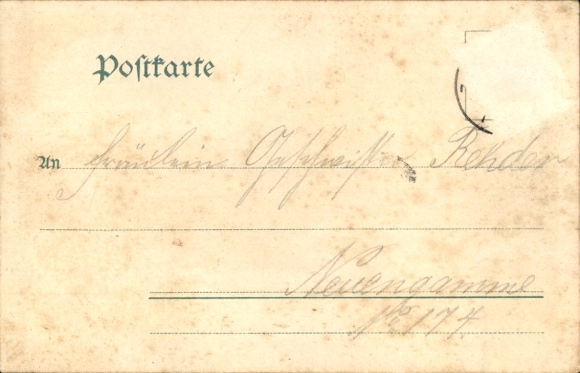 Postkarte
An Fräulein Geschwister Rehder
Neuengamme
No 174